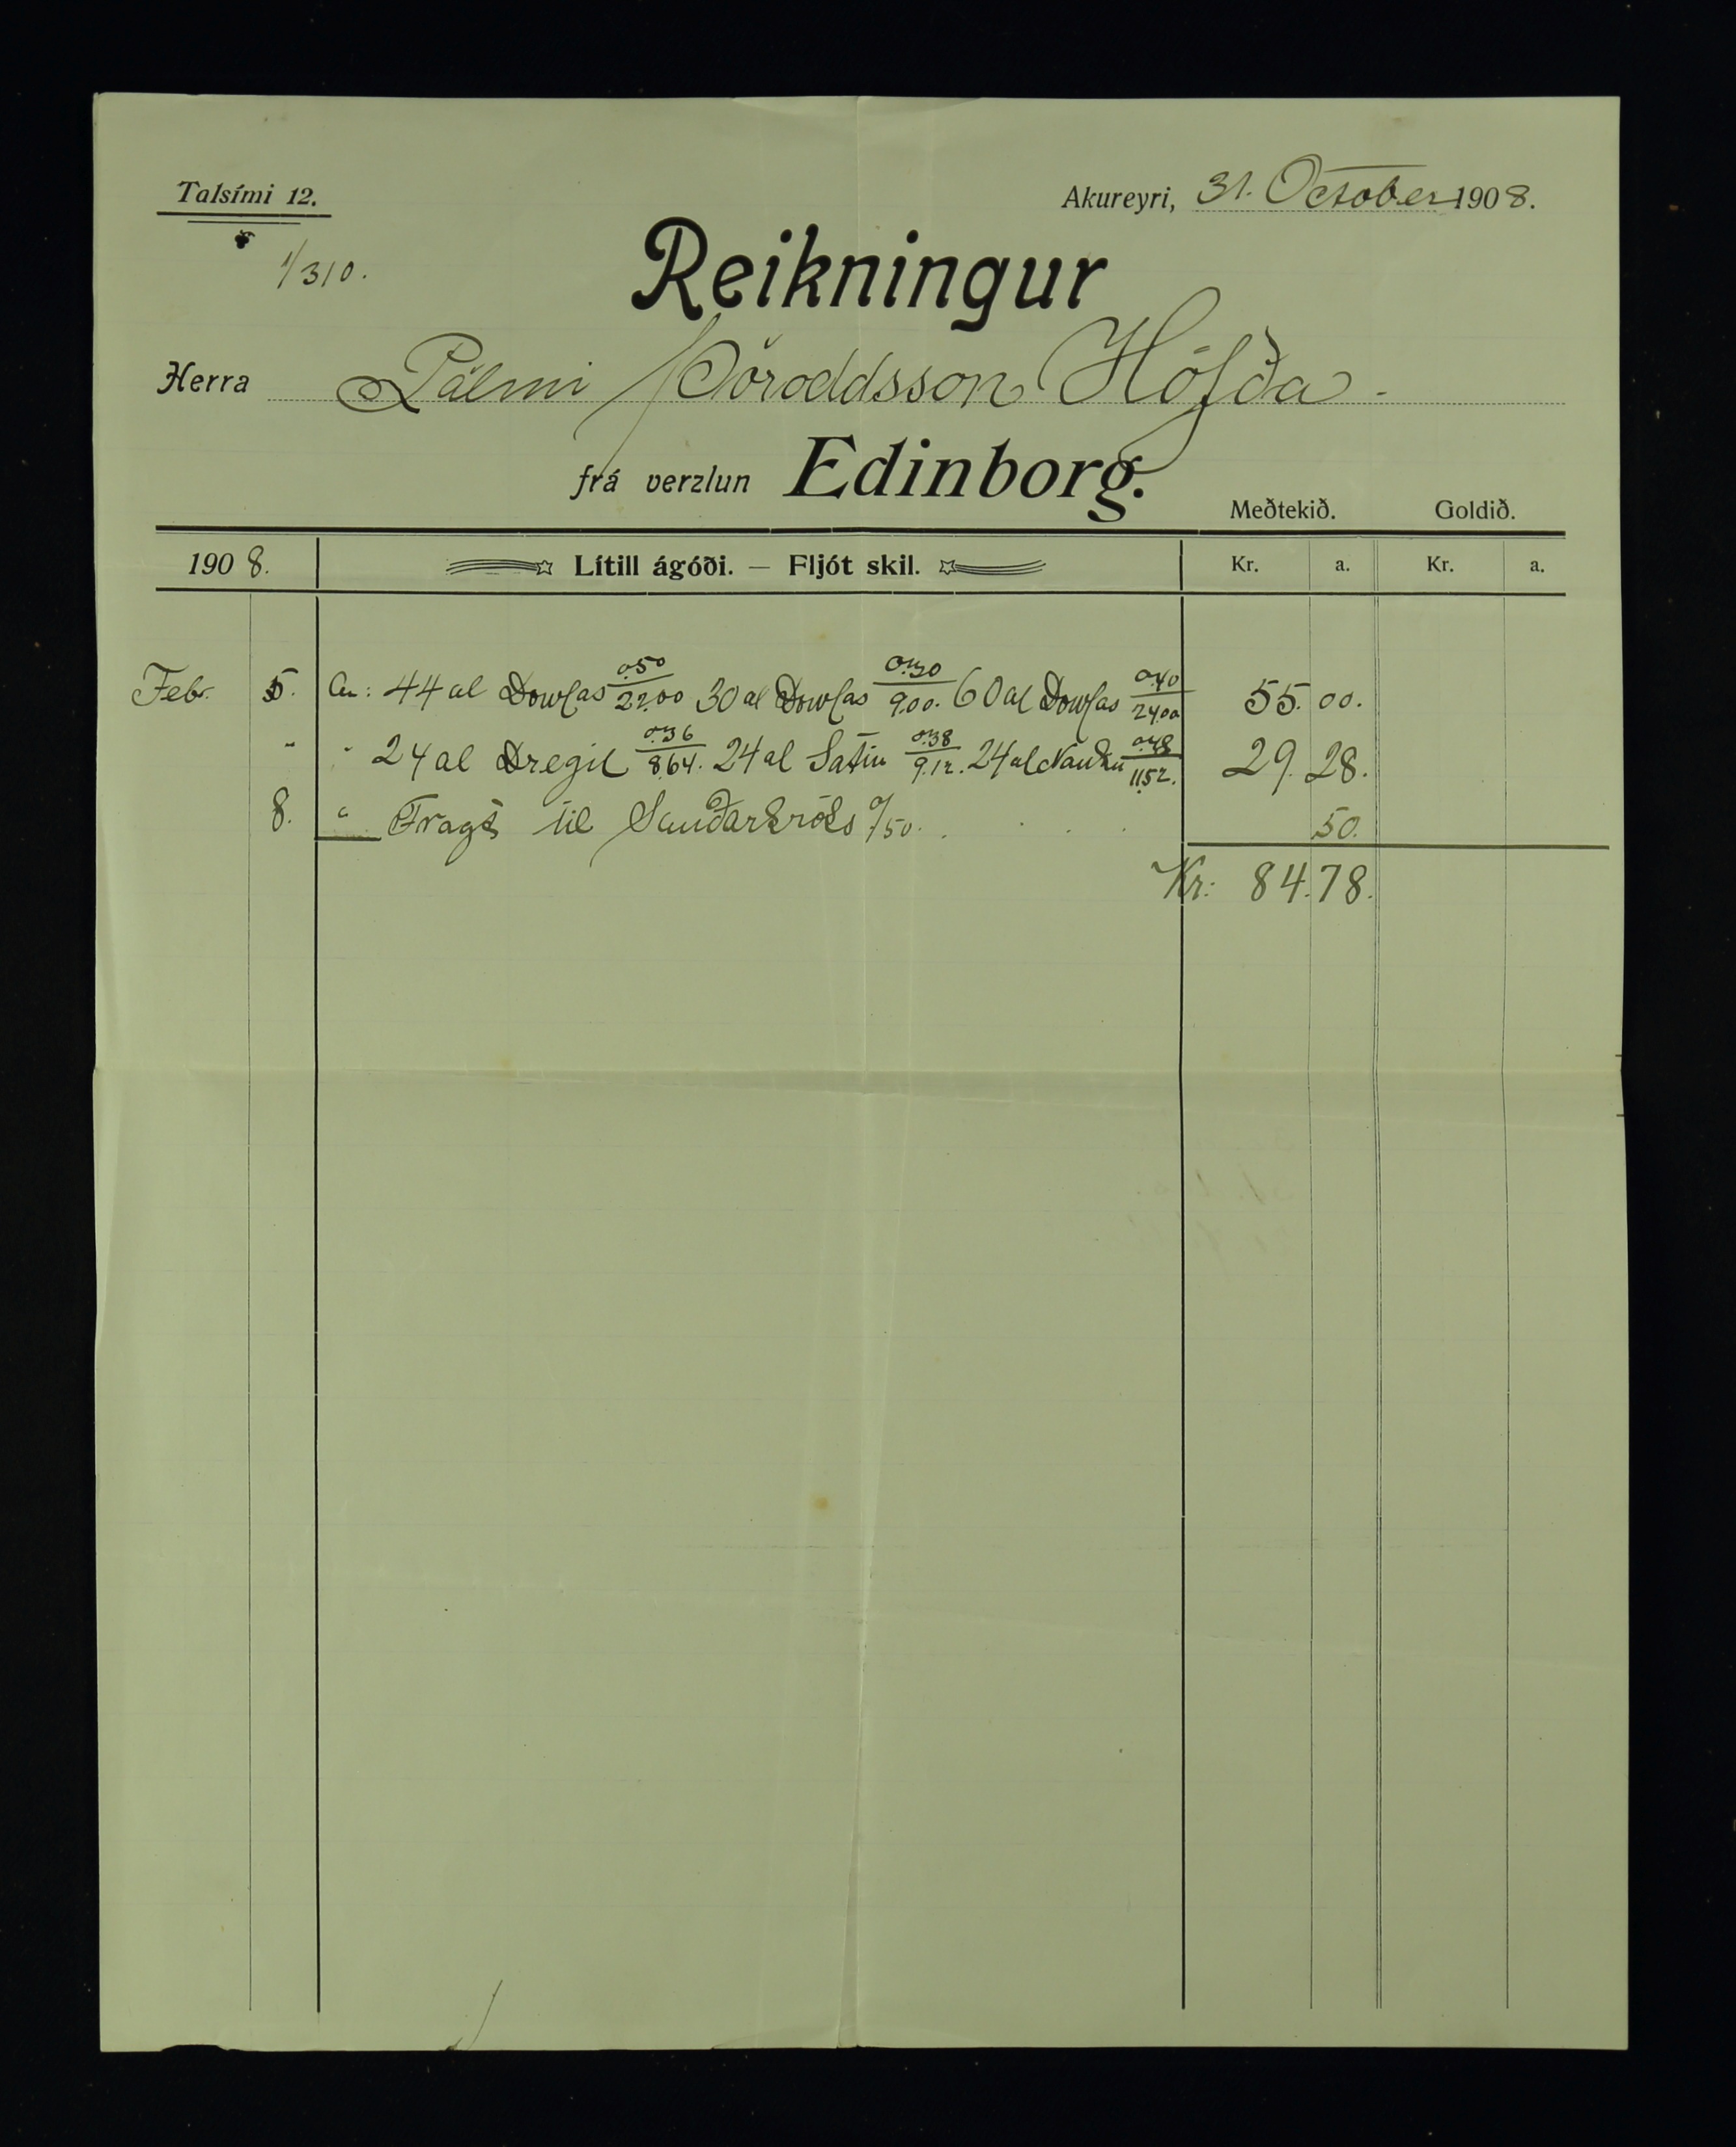 Talsími 12.
Akureyri, 31. October 1908.
1/310.
Reikningur
Herra Pálmi Þóroddsson Höfða.
frá verzlun Edinborg.
Meðtekið. Goldið.
1908. Lítill ágóði. — Fljót skil. Kr. a. Kr. a.
Febr. 5. An: 44 al Dowlas 0.50/22.00 30 al Dowlas 0.30/9.00. 60 al Dowlas 0.40/24.00 55.00.
" " 24 al Dregil 0.36/8.64. 24 al Satin 0.38/9.12. 24 al 0.48/11.52. 29.28.
8. " Fragt til Sauðarkróks 0/50. 50.
Kr: 84.78.